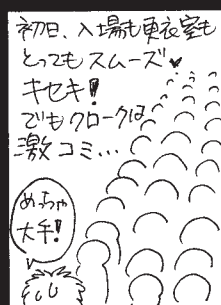 初日、入場も更衣室も
とってもスムーズ♥
キセキ!
でもクロークは
激コミ…
めっちゃ
大手!